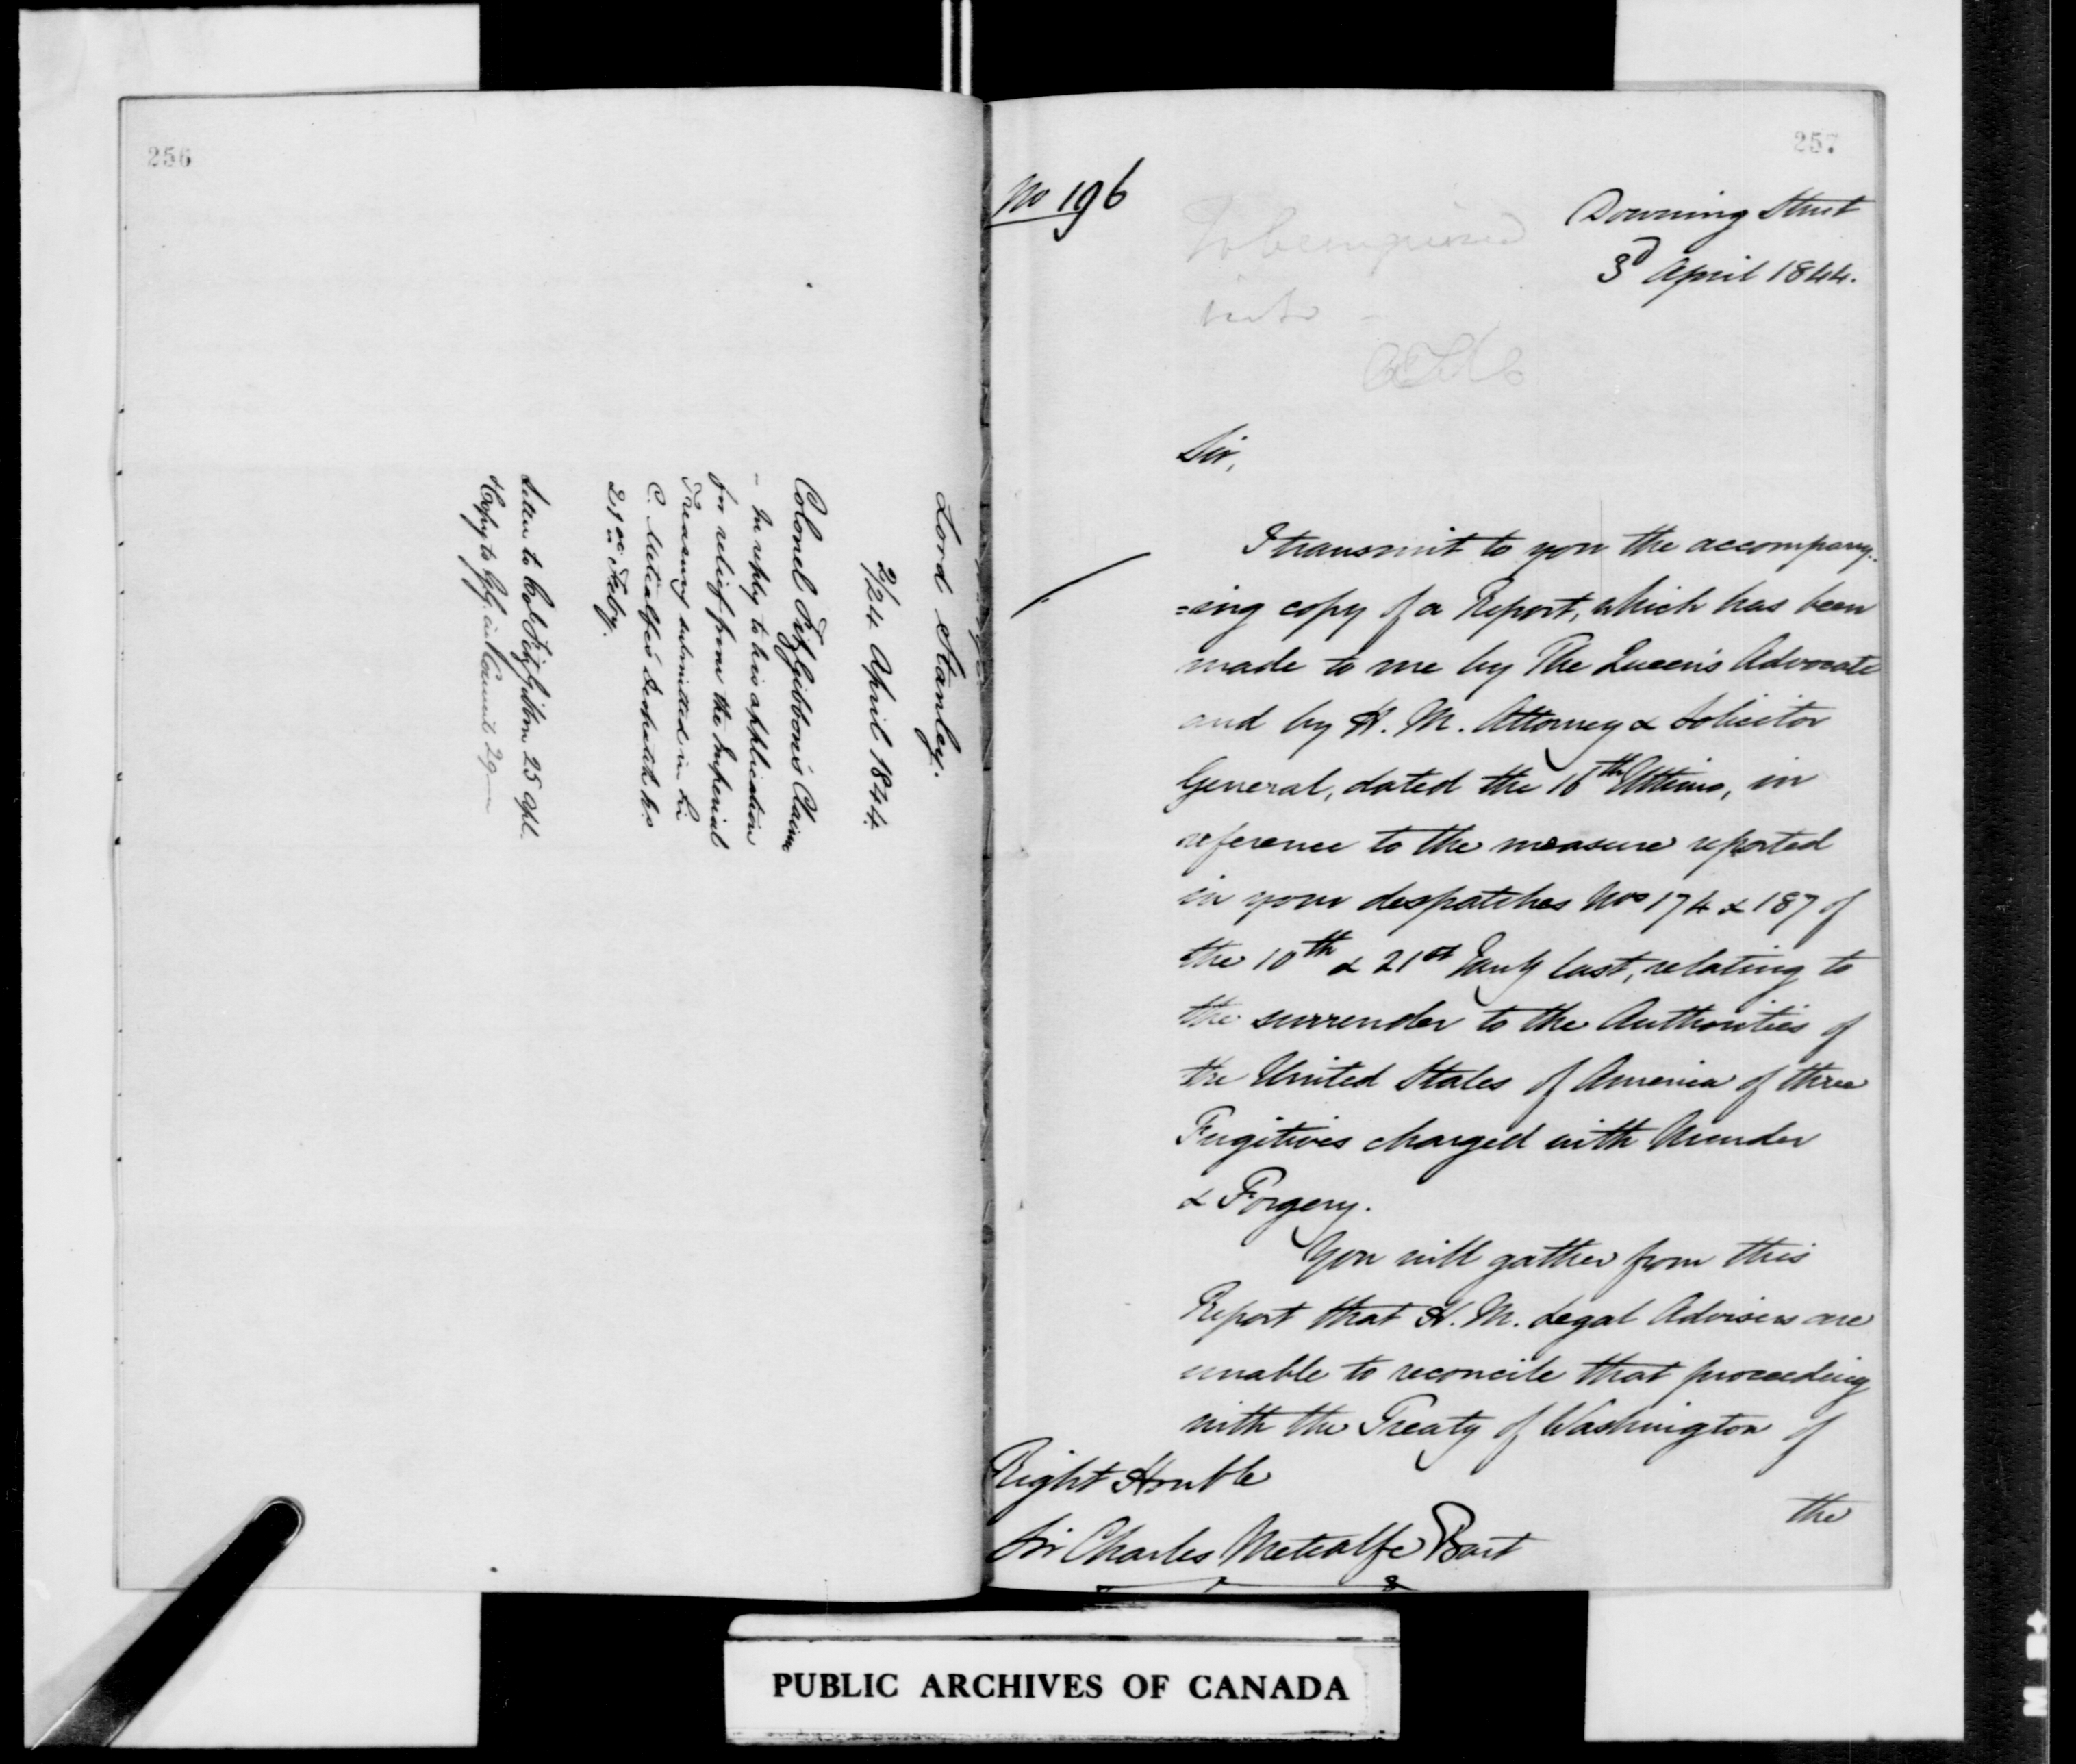 256
Lord Stanley.
2/24 April 1844.
Colonel Fitzgibbon's Claim
- In reply to his application
for relief from the Imperial
Treasury submitted in Sir
C. Metcalfe's Despatch No
21 of Feby.
Letter to Col Fitz Gibbon 25 Apl.
Copy to
257
No 196
Downing Street
3d April 1844.
To be enquired
into -
Sir,
I transmit to you the accompany-
=ing copy of a Report, which has been
made to me by The Queen's Advocate
and by H. M. Attorney & Solicitor
General, dated the 16th Ultimo, in
reference to the measure reported
in your despatches Nos 174 & 187 of
the 10th & 21st Jany last, relating to
the surrender to the Authorities of
the United States of America of three
Fugitives charged with Murder
& Forgery.
You will gather from this
Report that H. M. Legal Advisers are
unable to reconcile that proceeding
with the Treaty of Washington of
the
Right Honble
Sir Charles Metcalfe Bart
PUBLIC ARCHIVES OF CANADA